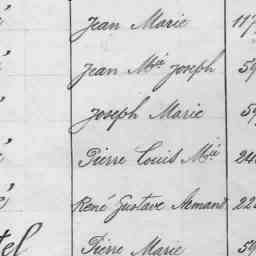 Jean Marie 117
Jean Mie Joseph 59
Joseph Marie 59
Pierre Louis Mie 24
René Gustave Armand 22
tel Pierre Marie 59